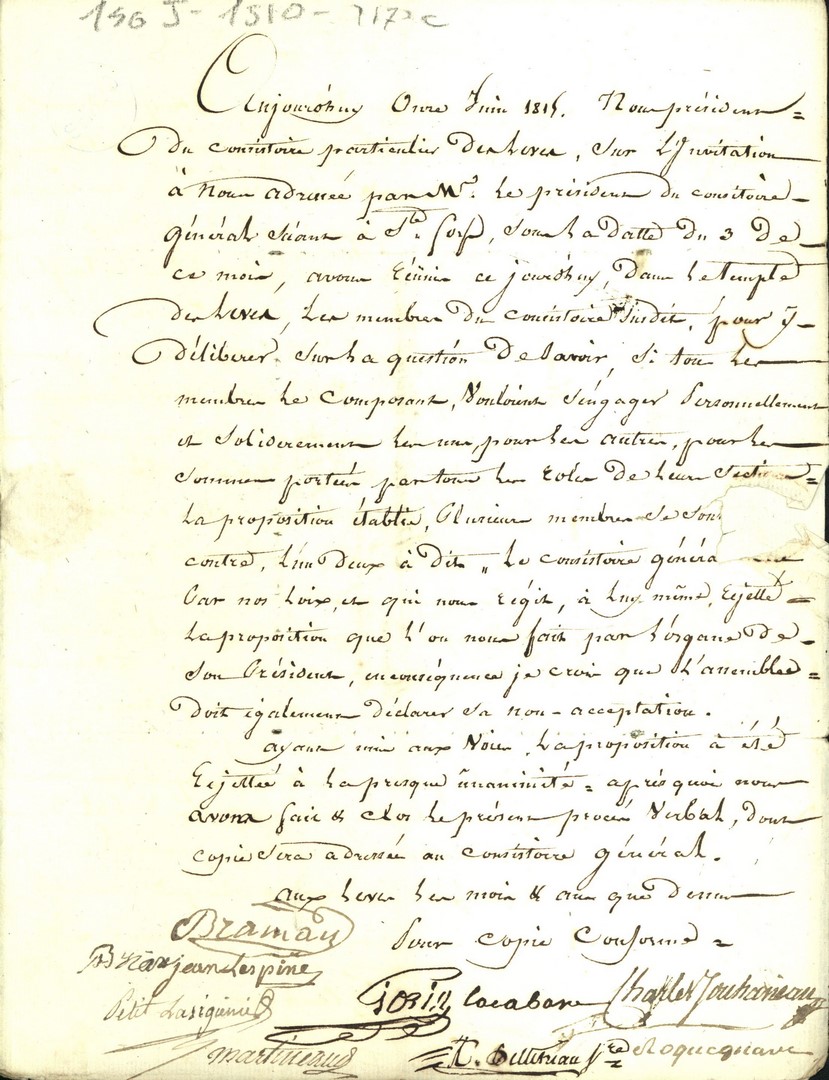 190 J - 1310 -
Aujourdhuy Onze Juin 1815. Nous président
Du consistoire particulier Des Leves, sur L'Invitation
à Nous adressée par Mr. Le président Du consitoire
général séant à Ste. foy, sous La Datte Du 3 De
ce mois, avons Réünis ce jourdhuy, Dans Le temple
des Leves, Les membres Du Consistoire Susdit, pour y
Déliberer sur La question De Savoir, si tous Les
membres Le Composant, Vouloient S'engager Personnellement
et Soliderement Les uns, pour Les autres, pour Les
Sommes portées par tous Les roles De Leur Section
La proposition établie, Plusieurs membres Se Sont
contre, L'un Deux à Dit „ Le consistoire généra
Par nos Loix, et qui nous Régit, à Luy même, Rejetté
La proposition que L'on nous fait par L'organe De
Son Président, en conséquence je crois que L'assemblée
Doit également Déclarer Sa non-acceptation.
ayant mis aux Voies, La proposition à été
Rejettée à La presque ünanimité = après quoi nous
avons fait & clos Le présent procés Verbal, Dont
copie Sera adressée au Consistoire général.
aux Leves Les mois & an que Dessus
Pour copie Conforme =
Braman
jean Lespine
JOSIN Lacabane Charles Jouhaneau
Petit Lasigunie
martineaud Roquegnave